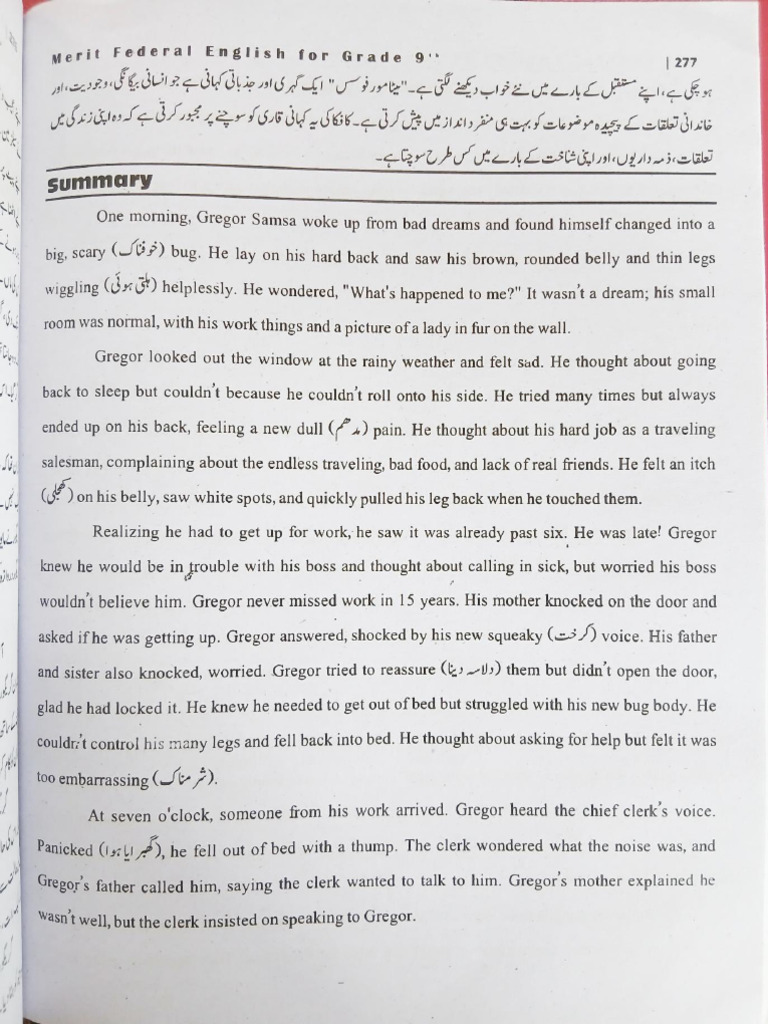 Merit Federal English for Grade 9th
| 277
ہو چکی ہے، اپنے مستقبل کے بارے میں نئے خواب دیکھنے لگتی ہے۔ "میٹامورفوسس" ایک گہری اور جذباتی کہانی ہے جو انسانی بیگانگی، وجودیت، اور
خاندانی تعلقات کے پیچیدہ موضوعات کو بہت ہی منفرد انداز میں پیش کرتی ہے۔ کافکا کی یہ کہانی قاری کو سوچنے پر مجبور کرتی ہے کہ وہ اپنی زندگی میں
تعلقات، ذمہ داریوں، اور اپنی شناخت کے بارے میں کس طرح سوچتا ہے۔
Summary
One morning, Gregor Samsa woke up from bad dreams and found himself changed into a
big, scary (خوفناک) bug. He lay on his hard back and saw his brown, rounded belly and thin legs
wiggling (ہلتی ہوئی) helplessly. He wondered, "What's happened to me?" It wasn't a dream; his small
room was normal, with his work things and a picture of a lady in fur on the wall.
Gregor looked out the window at the rainy weather and felt sad. He thought about going
back to sleep but couldn't because he couldn't roll onto his side. He tried many times but always
ended up on his back, feeling a new dull (مدھم) pain. He thought about his hard job as a traveling
salesman, complaining about the endless traveling, bad food, and lack of real friends. He felt an itch
(کھجلی) on his belly, saw white spots, and quickly pulled his leg back when he touched them.
Realizing he had to get up for work, he saw it was already past six. He was late! Gregor
knew he would be in trouble with his boss and thought about calling in sick, but worried his boss
wouldn't believe him. Gregor never missed work in 15 years. His mother knocked on the door and
asked if he was getting up. Gregor answered, shocked by his new squeaky (کرخت) voice. His father
and sister also knocked, worried. Gregor tried to reassure (دلاسہ دینا) them but didn't open the door,
glad he had locked it. He knew he needed to get out of bed but struggled with his new bug body. He
couldn't control his many legs and fell back into bed. He thought about asking for help but felt it was
too embarrassing (شرمناک).
At seven o'clock, someone from his work arrived. Gregor heard the chief clerk's voice.
Panicked (گھبرایا ہوا), he fell out of bed with a thump. The clerk wondered what the noise was, and
Gregor's father called him, saying the clerk wanted to talk to him. Gregor's mother explained he
wasn't well, but the clerk insisted on speaking to Gregor.